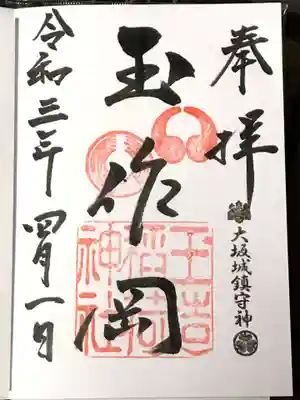 奉拝
大坂城鎮守神
玉作岡
玉造
稲荷
神社
令和三年四月一日